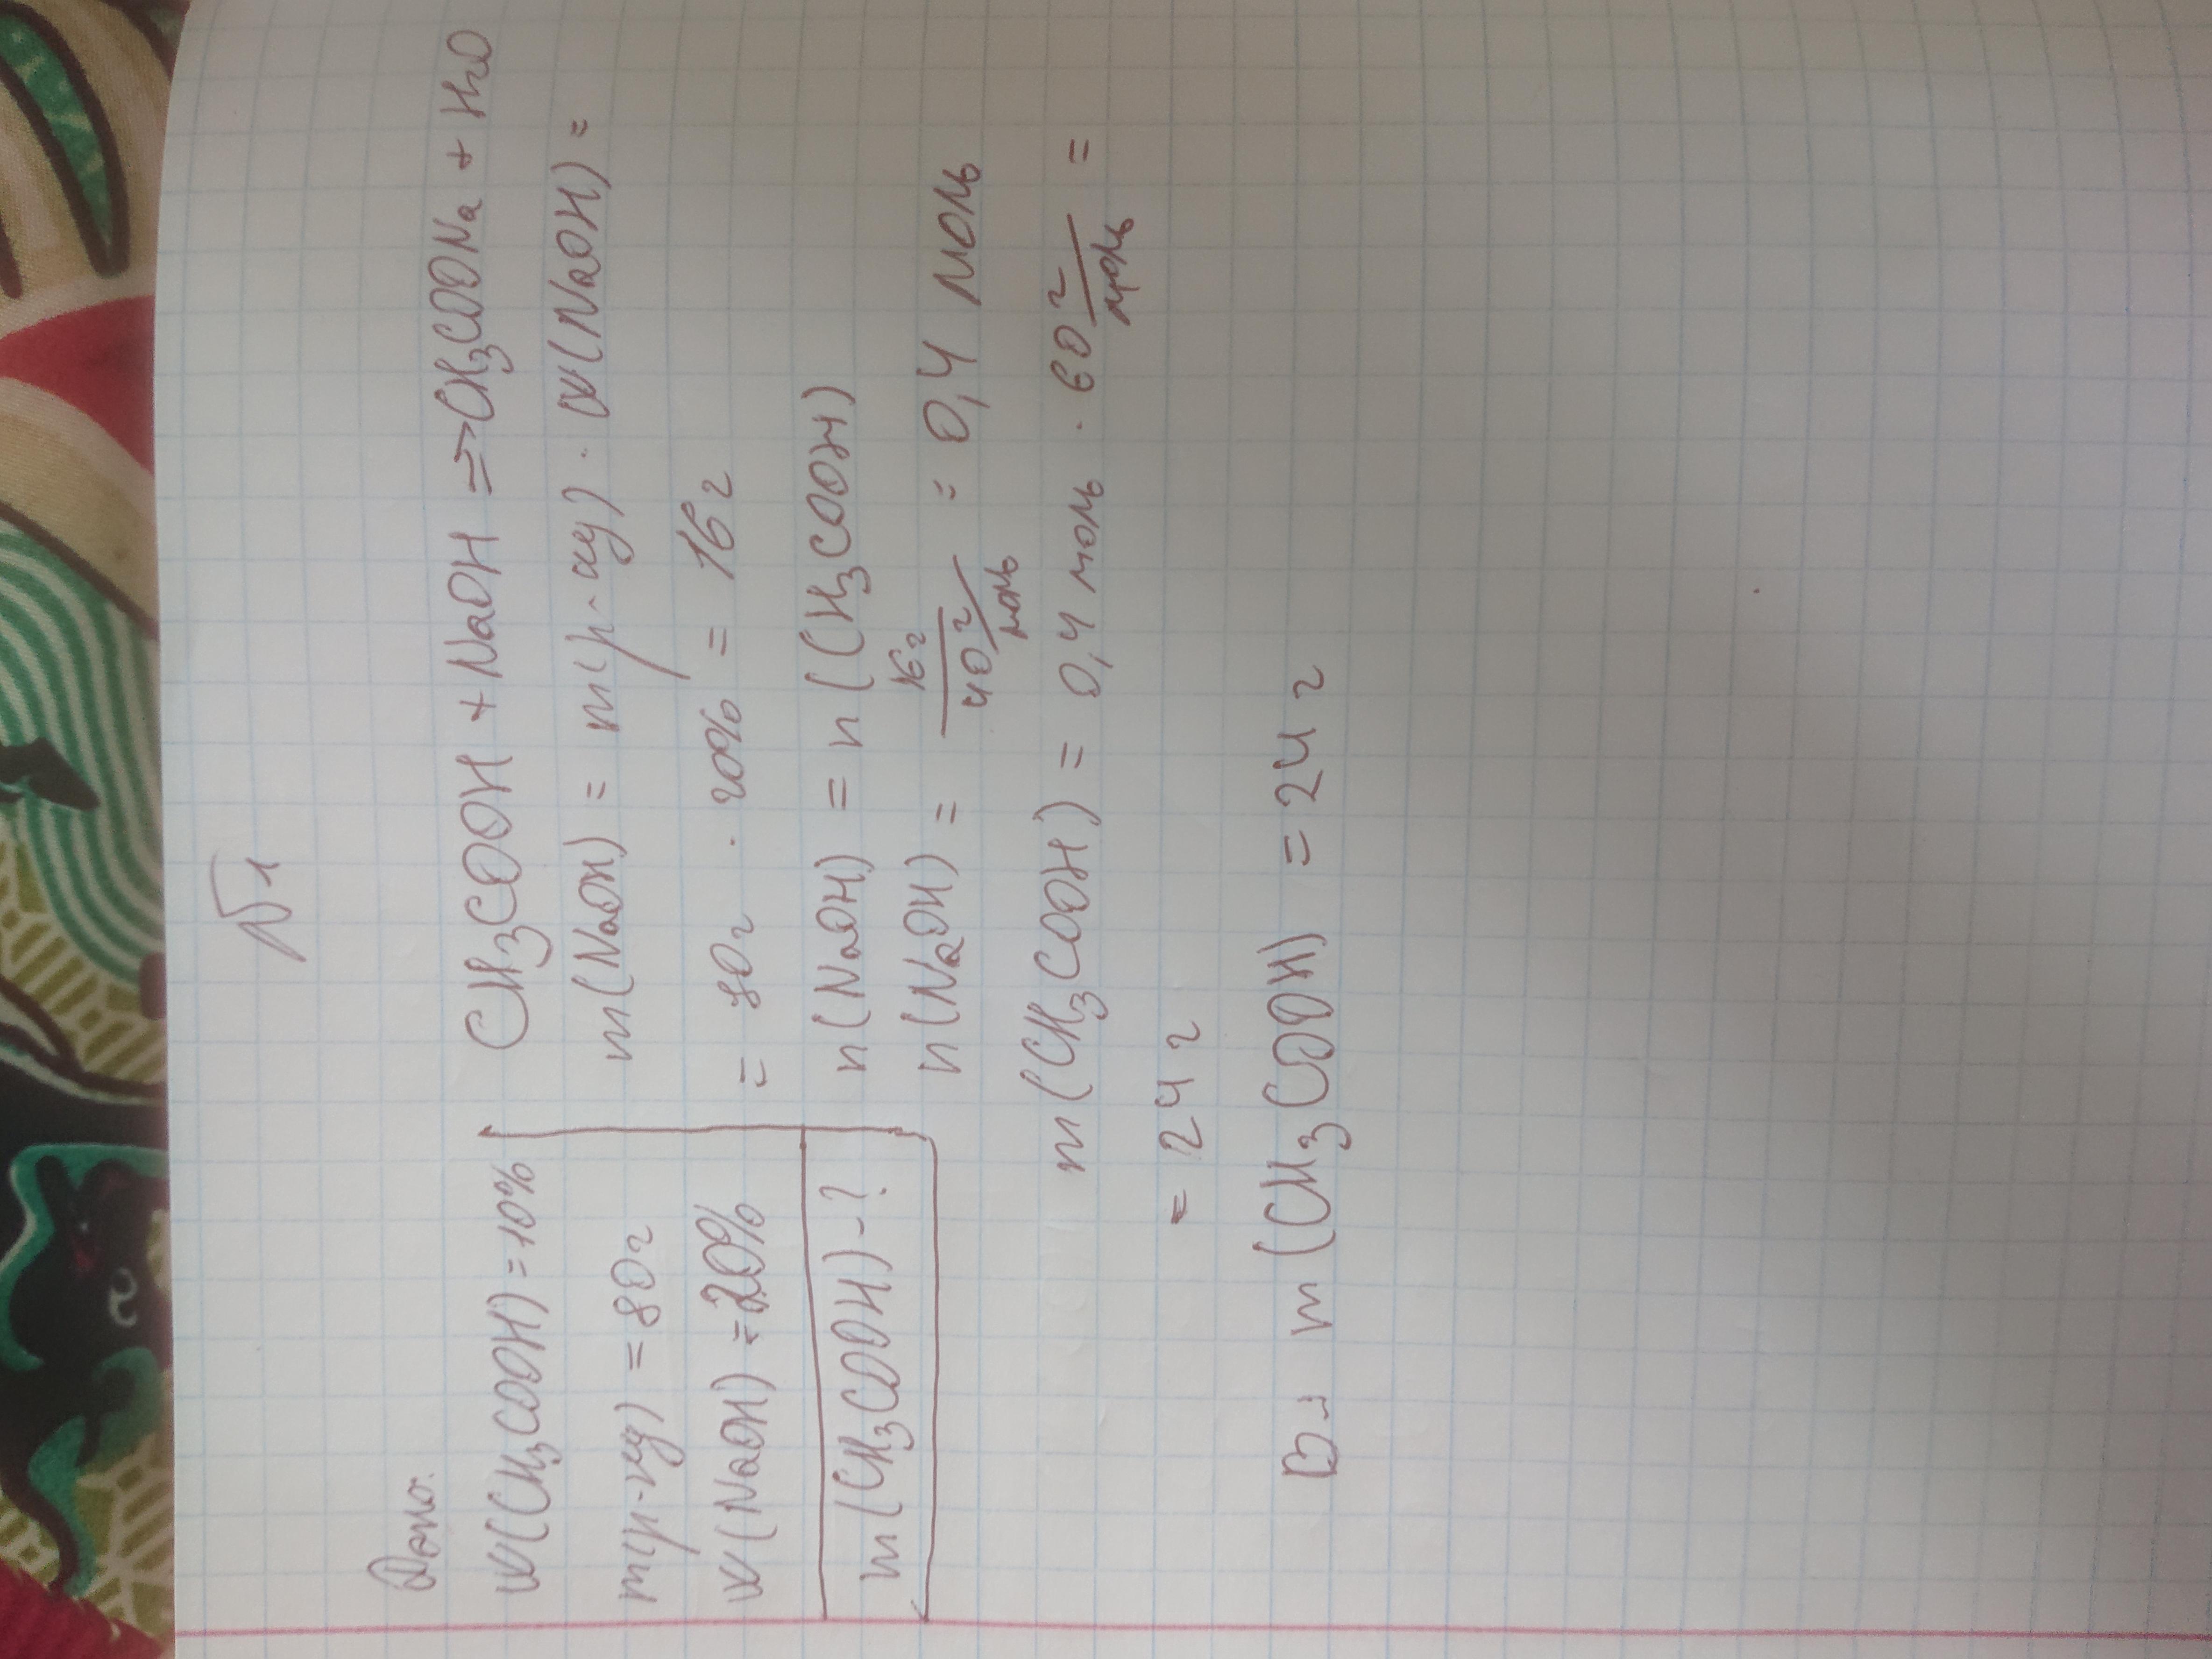 №1
Дано:
w(CH3COOH) = 10%
m(р-ну) = 80г
w(NaOH) = 20%
m(CH3COOH) - ?
CH3COOH + NaOH => CH3COONa + H2O
m(NaOH) = m(р-ну) · w(NaOH) =
= 80г · 20% = 16г
n(NaOH) = n(CH3COOH)
n(NaOH) = 16г / 40 г/моль = 0,4 моль
m(CH3COOH) = 0,4 моль · 60 г/моль =
= 24 г
m(CH3COOH) = 24 г